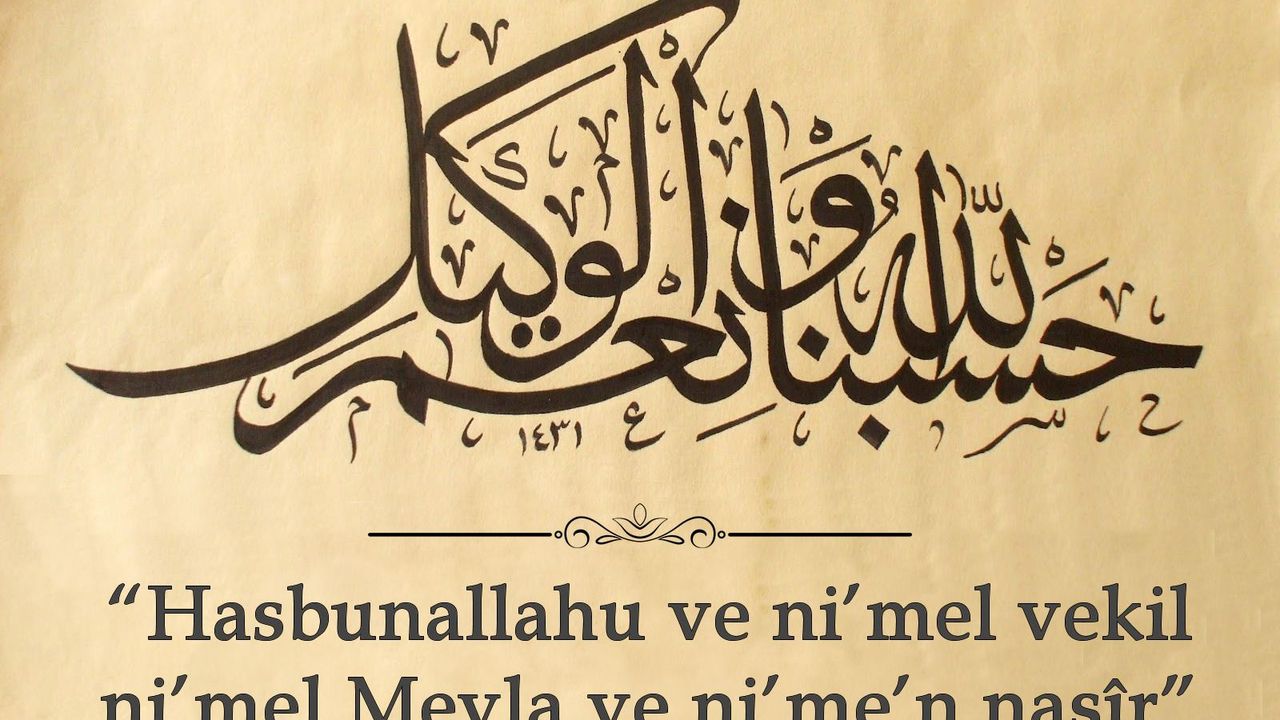 حَسْبُنَا اللّٰهُ وَنِعْمَ الْوَكِيلُ
١٤٣١
“Hasbunallahu ve ni’mel vekil
ni’mel Mevla ve ni’me’n nasîr”